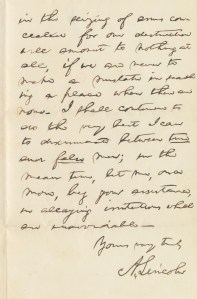 in the seizing of arms con-
cealed for our destruction
will amount to nothing at
all, if we are never to
make a mistake in search-
ing a place where there are
none. I shall continue to
do the very best I can
to discriminate between true
and false men; in the
mean time, let me, once
more, beg your assistance
in allaying irritations which
are unavoidable—
Yours very truly
A. Lincoln